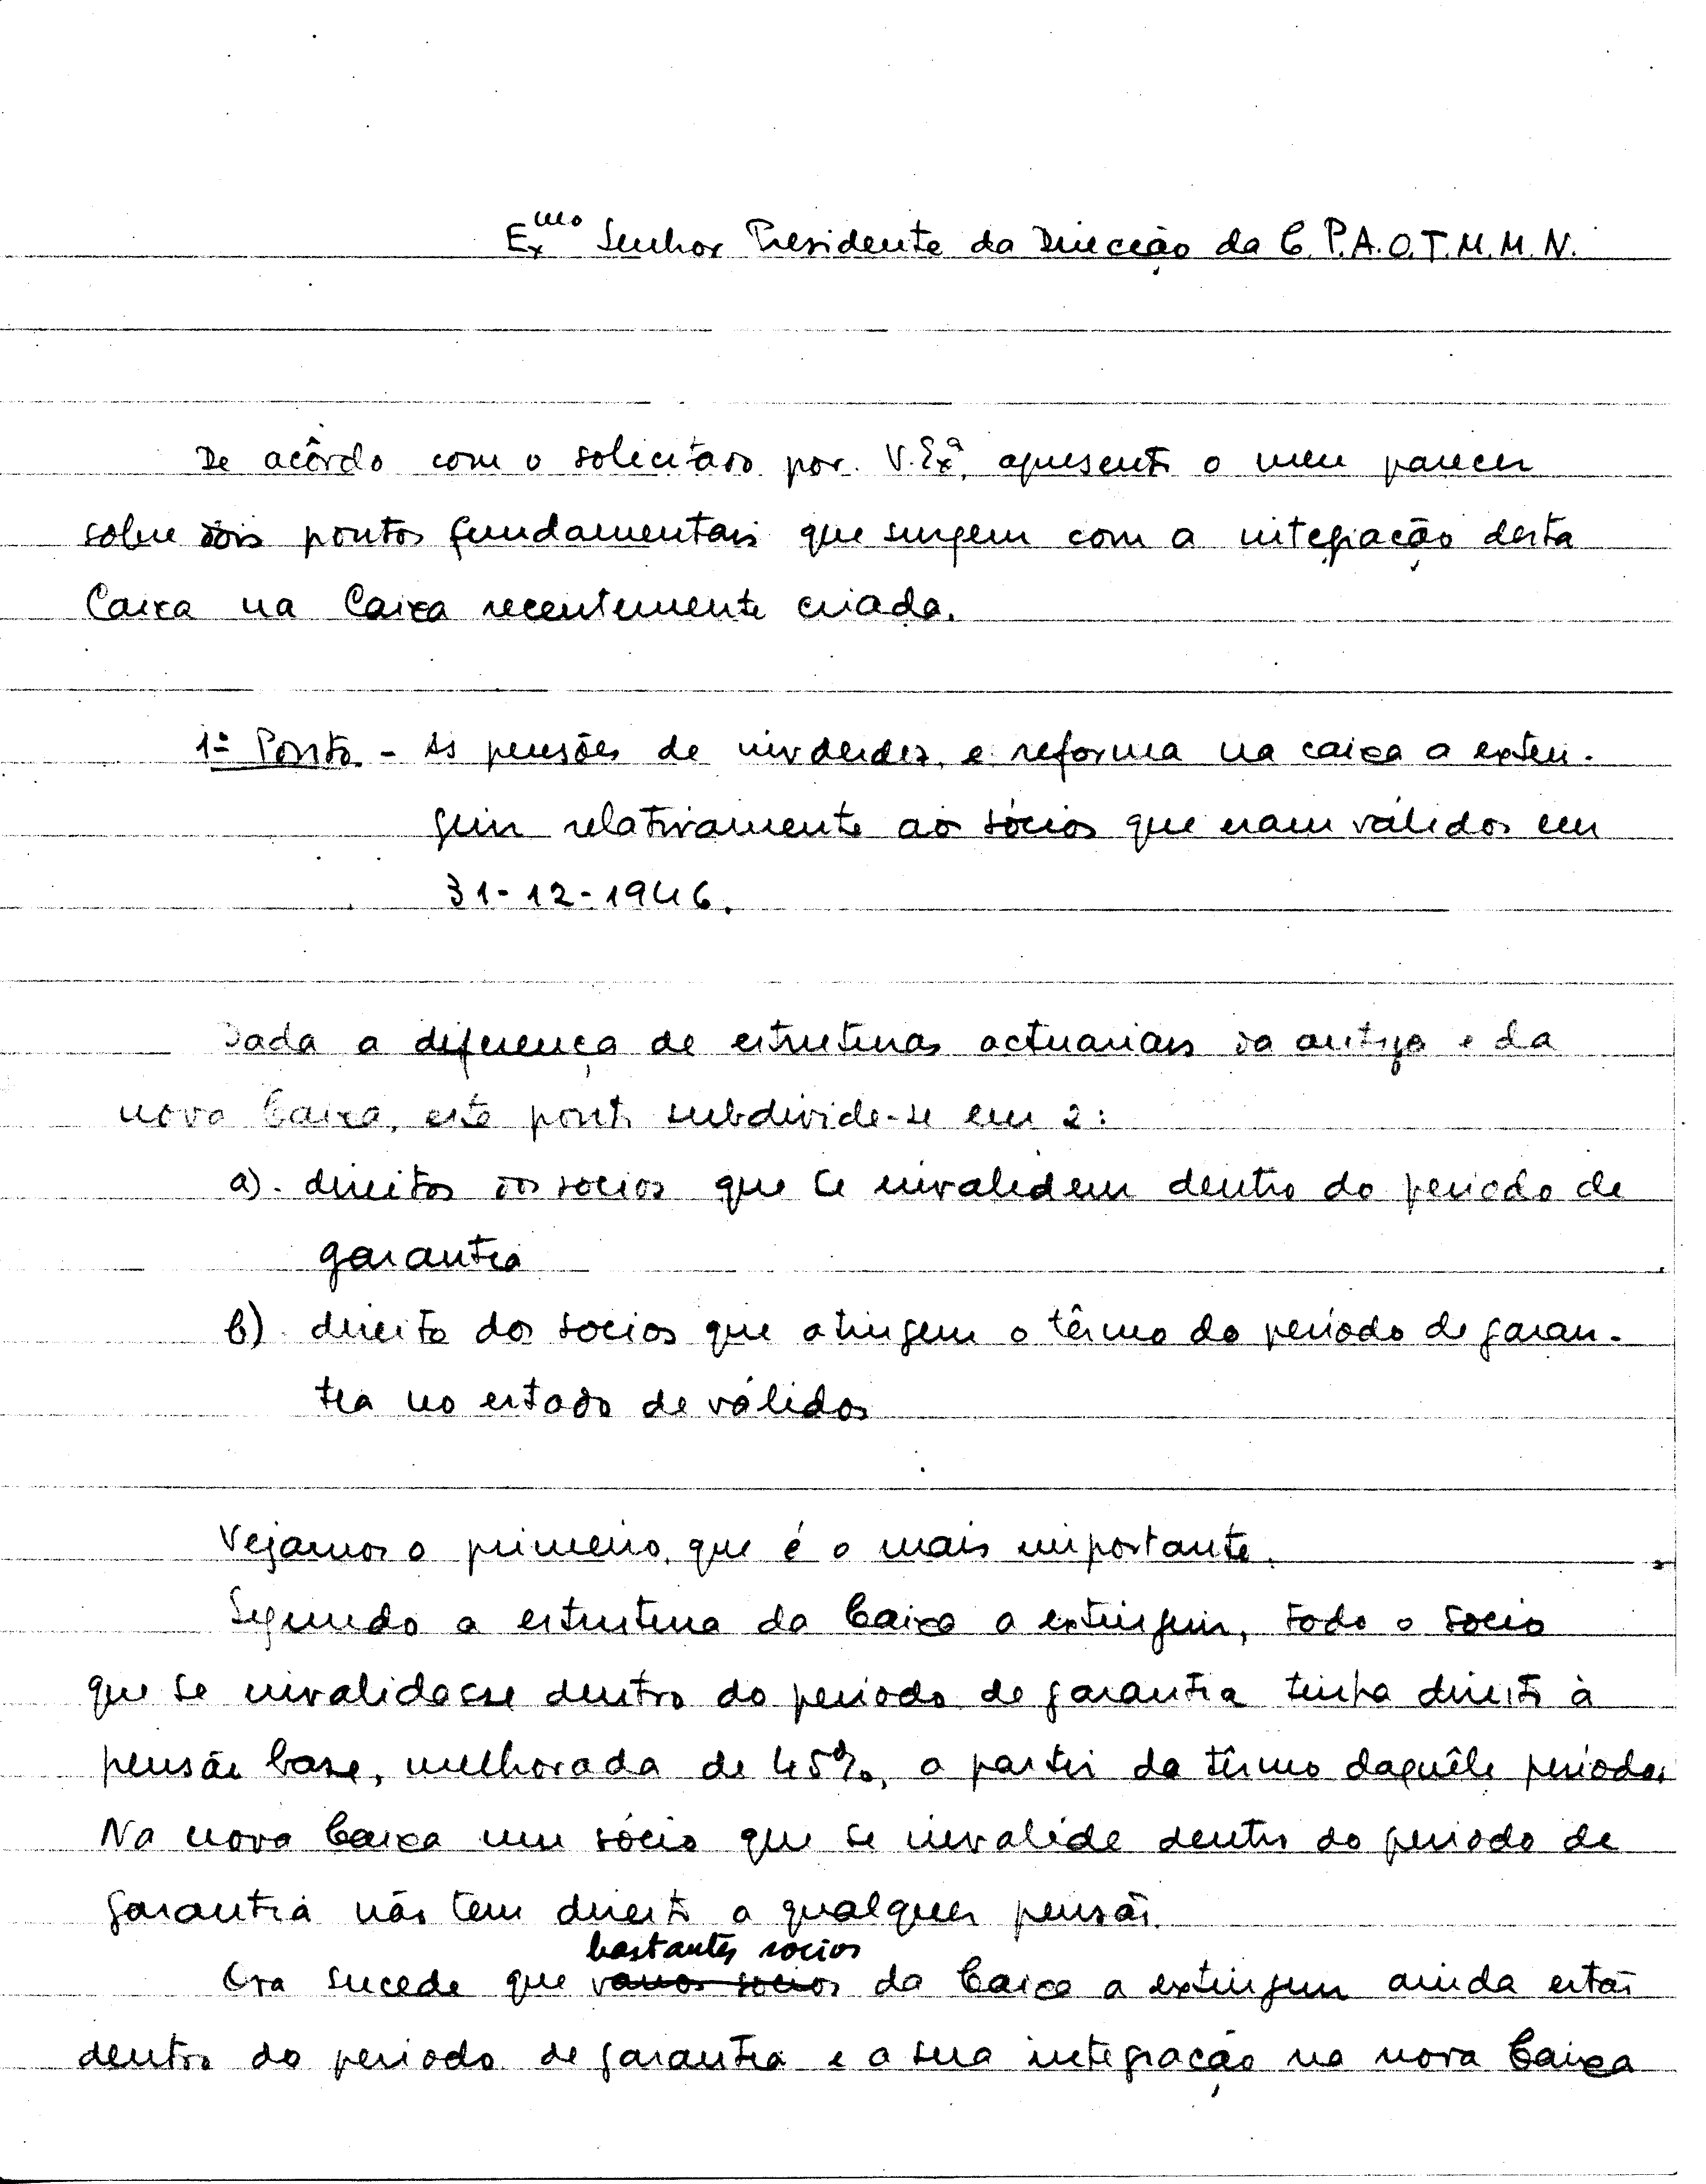 Exmo Senhor Presidente da Direcção da C.P.A.O.T.M.M.N.
De acôrdo com o solicitado por V.Exª, apresento o meu parecer
sobre dois pontos fundamentais que surgem com a integração desta
Caixa na Caixa recentemente criada.
1º Ponto - As pensões de invalidez e reforma na caixa a extin-
guir relativamente aos sócios que eram válidos em
31-12-1946.
Dada a diferença de estruturas actuariais da antiga e da
nova Caixa, este ponto subdivide-se em 2:
a) - direitos dos socios que se invalidem dentro do periodo de
garantia
b) - direito dos socios que atingem o têrmo do período de garan-
tia no estado de válidos
Vejamos o primeiro, que é o mais importante.
Segundo a estrutura da Caixa a extinguir, todo o socio
que se invalidasse dentro do periodo de garantia tinha direito à
pensão base, melhorada de 45%, a partir do têrmo daquêle período.
Na nova Caixa um sócio que se invalide dentro do periodo de
garantia não tem direito a qualquer pensão.
bastantes socios
Ora sucede que varios socios da Caixa a extinguir ainda estão
dentro do periodo de garantia e a sua integração na nova Caixa